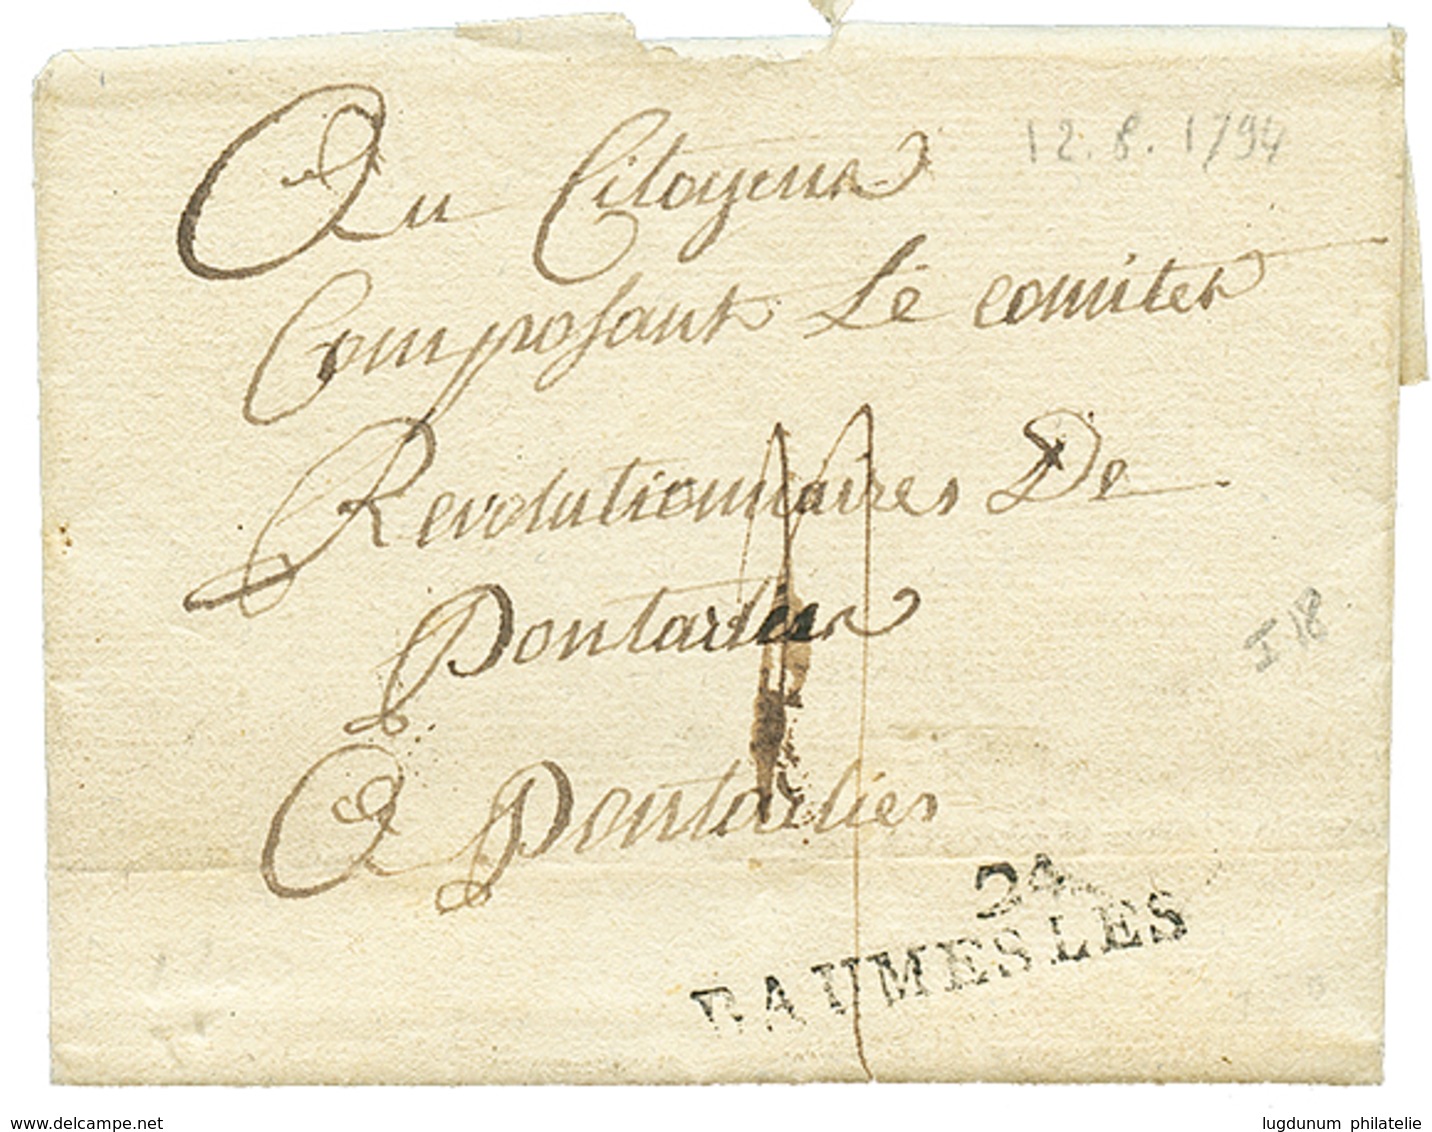 Au Citoyens
12.8.1794
Composant Le comiter
Revolutionnaires De
Pontarlier
I 18
A Pontarlier
24
BAUMES LES
www.delcampe.net
lugdunum philatelie